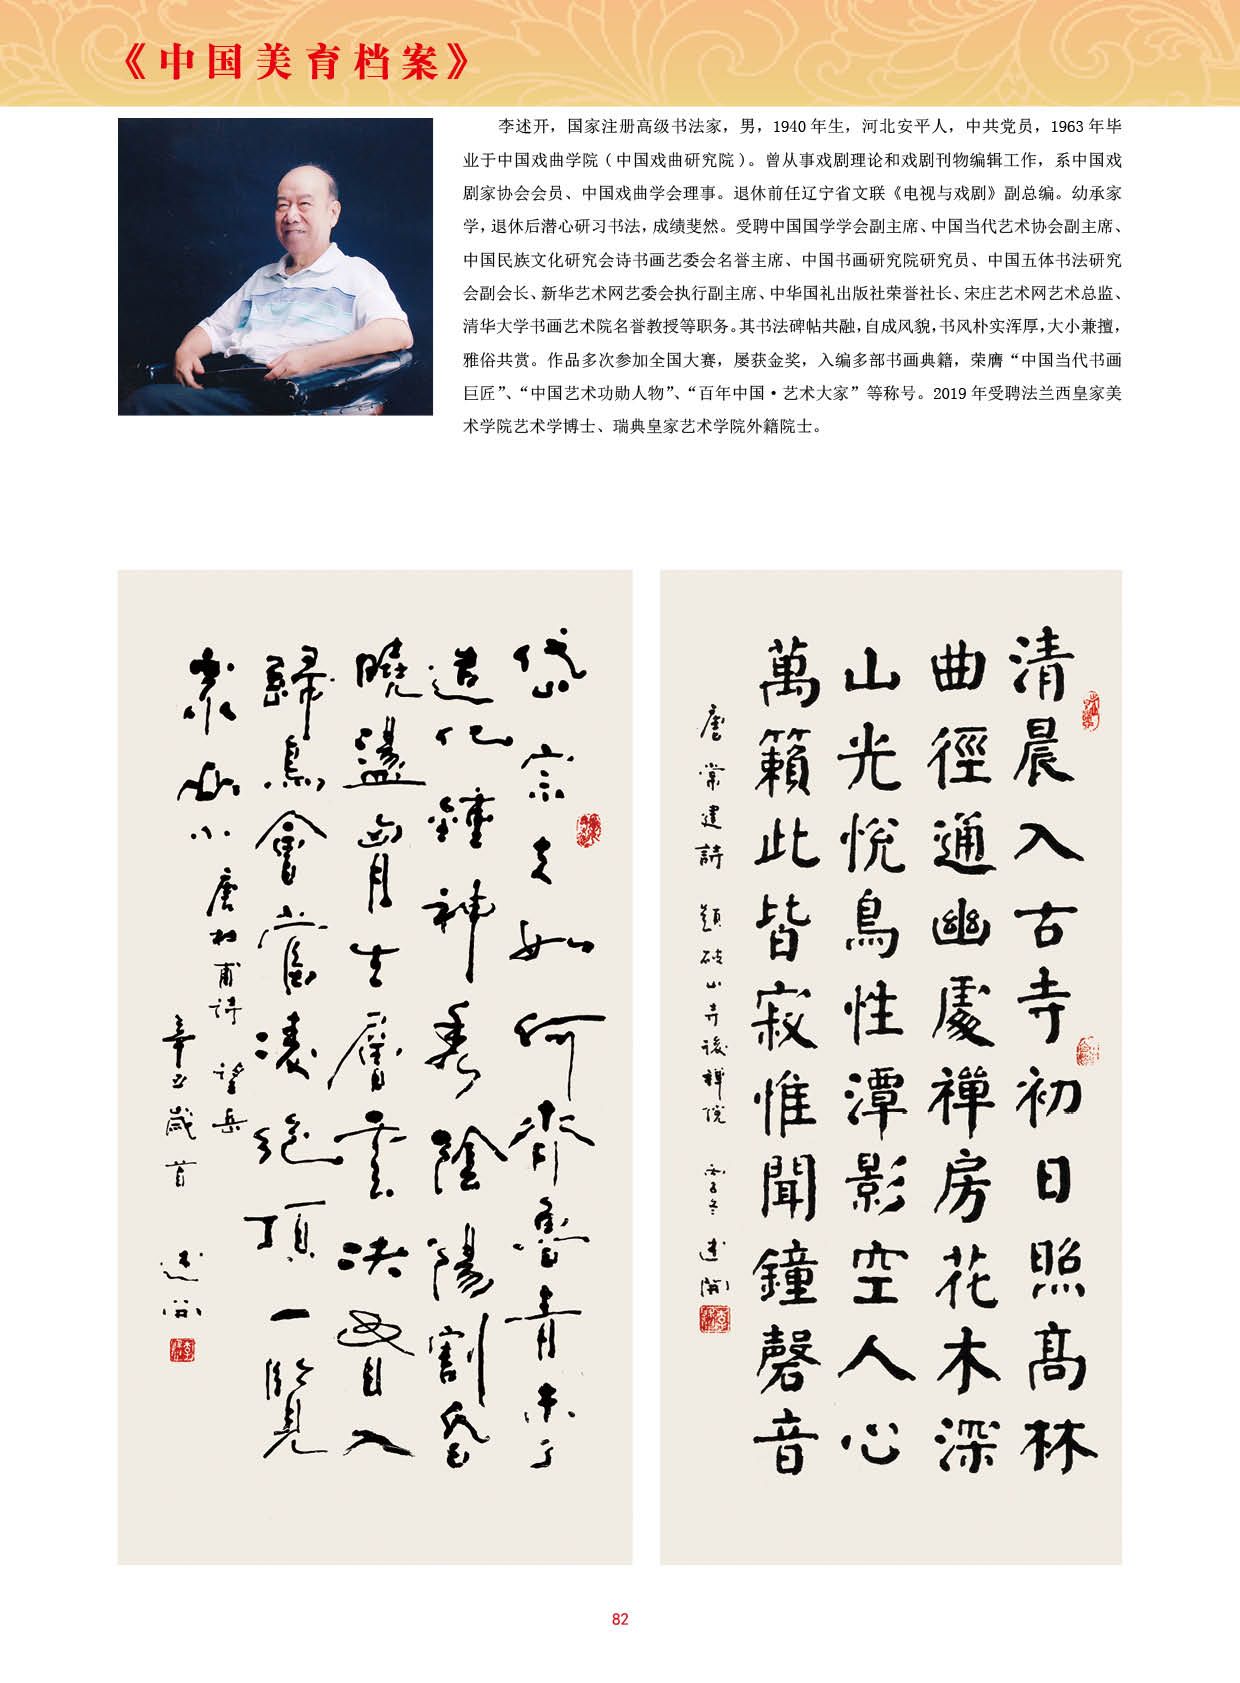 《中国美育档案》
李述开，国家注册高级书法家，男，1940 年生，河北安平人，中共党员，1963 年毕
业于中国戏曲学院（中国戏曲研究院）。曾从事戏剧理论和戏剧刊物编辑工作，系中国戏
剧家协会会员、中国戏曲学会理事。退休前任辽宁省文联《电视与戏剧》副总编。幼承家
学，退休后潜心研习书法，成绩斐然。受聘中国国学学会副主席、中国当代艺术协会副主席、
中国民族文化研究会诗书画艺委会名誉主席、中国书画研究院研究员、中国五体书法研究
会副会长、新华艺术网艺委会执行副主席、中华国礼出版社荣誉社长、宋庄艺术网艺术总监、
清华大学书画艺术院名誉教授等职务。其书法碑帖共融，自成风貌，书风朴实浑厚，大小兼擅，
雅俗共赏。作品多次参加全国大赛，屡获金奖，入编多部书画典籍，荣膺“中国当代书画
巨匠”、“中国艺术功勋人物”、“百年中国·艺术大家”等称号。2019 年受聘法兰西皇家美
术学院艺术学博士、瑞典皇家艺术学院外籍院士。
清晨入古寺初日照高林
曲徑通幽處禪房花木深
山光悅鳥性潭影空人心
萬籟此皆寂惟聞鐘磬音
唐常建詩 題破山寺後禪院 丙子冬 述開
岱宗夫如何齊魯青未了
造化鍾神秀陰陽割昏
曉盪胷生層雲決眥入
歸鳥會當凌絕頂一覽
衆山小
唐杜甫詩 望岳
辛丑歲首 述開
82